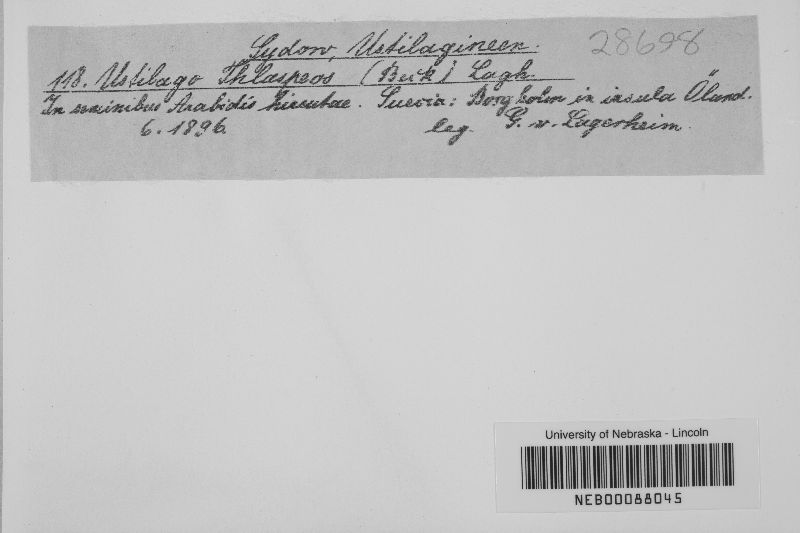 Sydow, Ustilagineen.
28698
118. Ustilago Thlaspeos (Beck) Lagh.
In seminibus Arabidis hirsutae. Suecia: Borgholm in insula Öland.
6. 1896
leg. G. v. Lagerheim.
University of Nebraska - Lincoln
NEB00088045